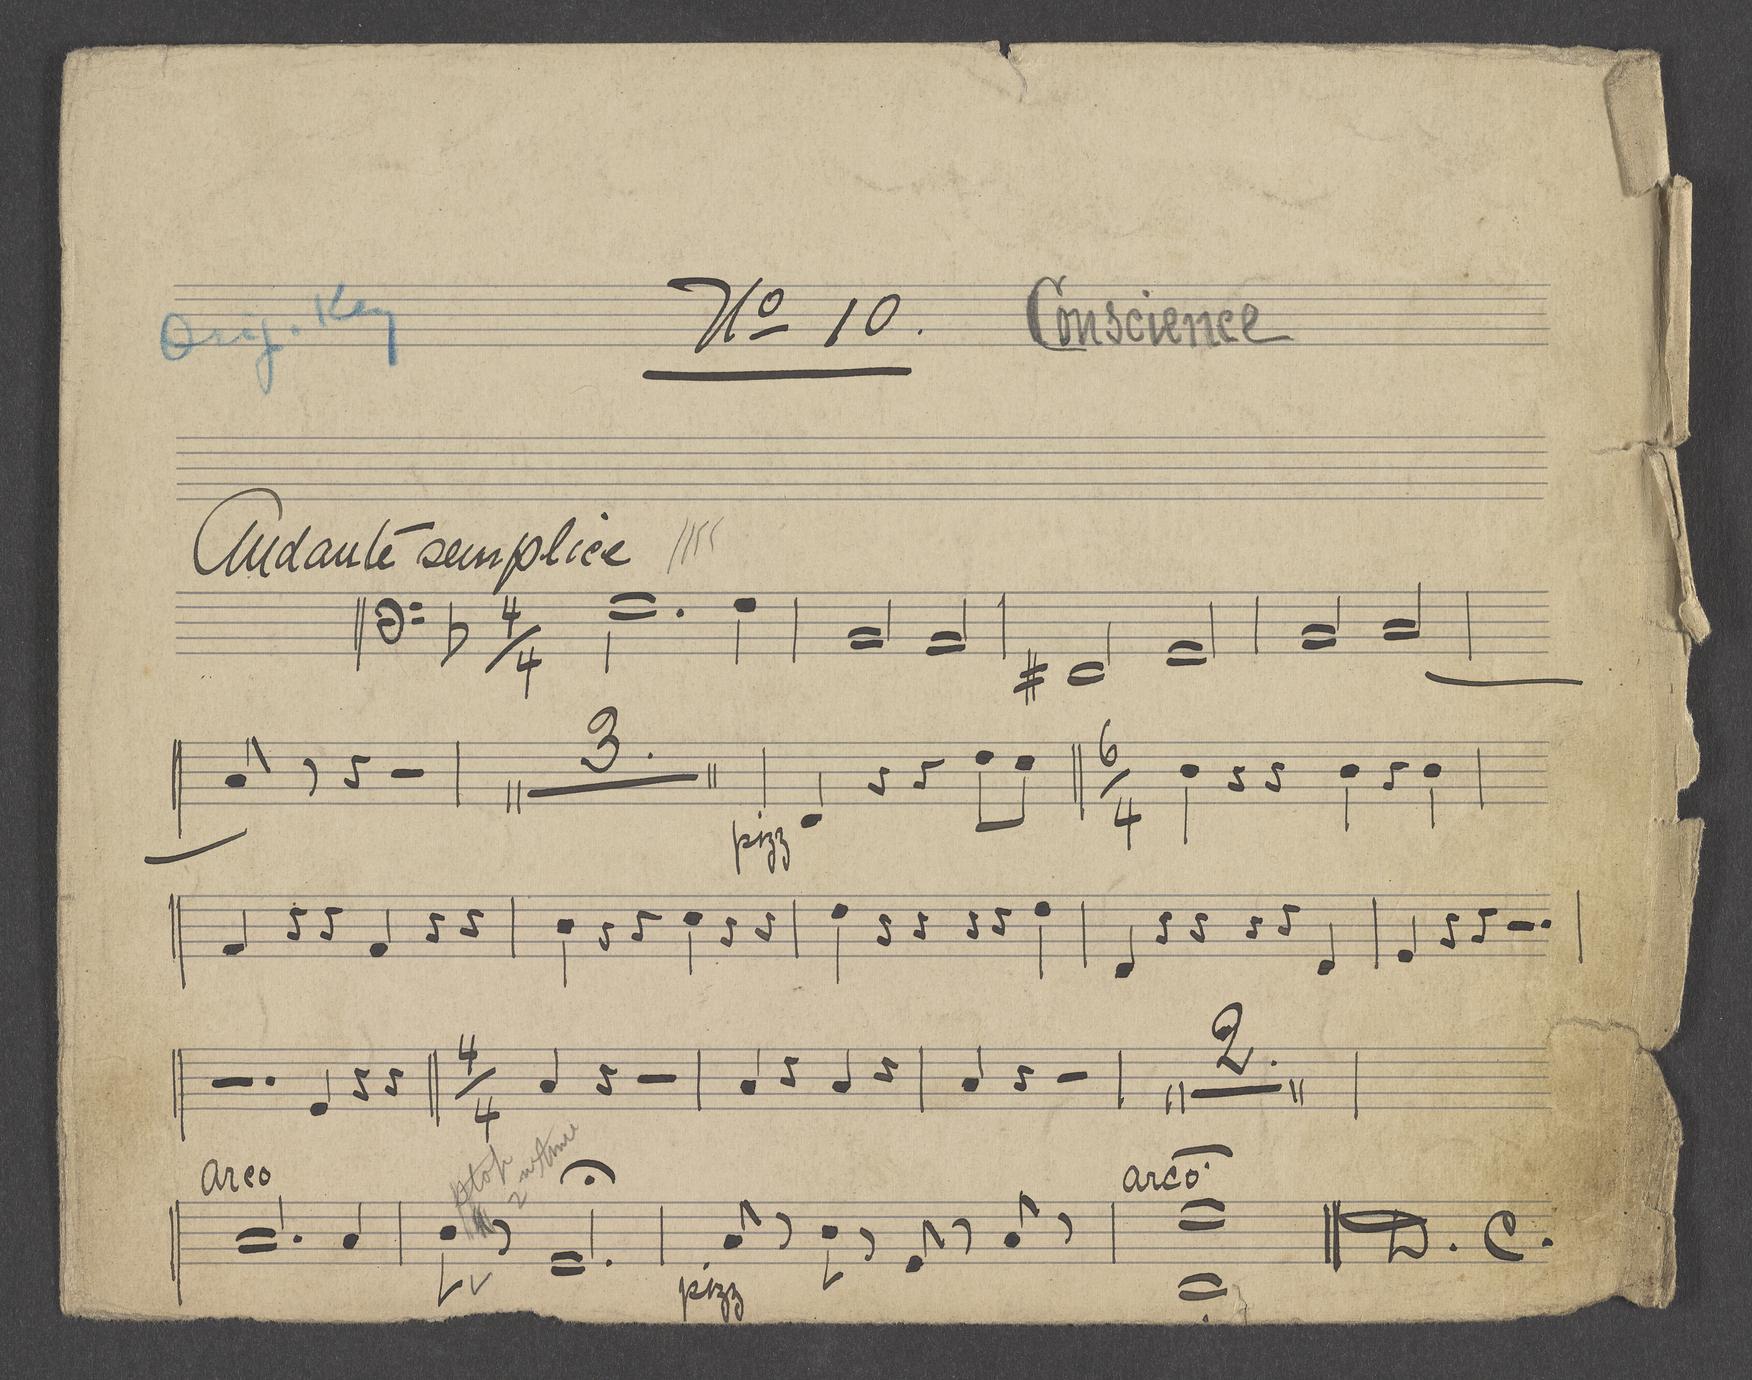 Orig. Key Nº 10. Conscience
Andante semplice
4/4
3.
pizz 6/4
4/4 2.
stop
arco 2nd time arco
pizz D. C.